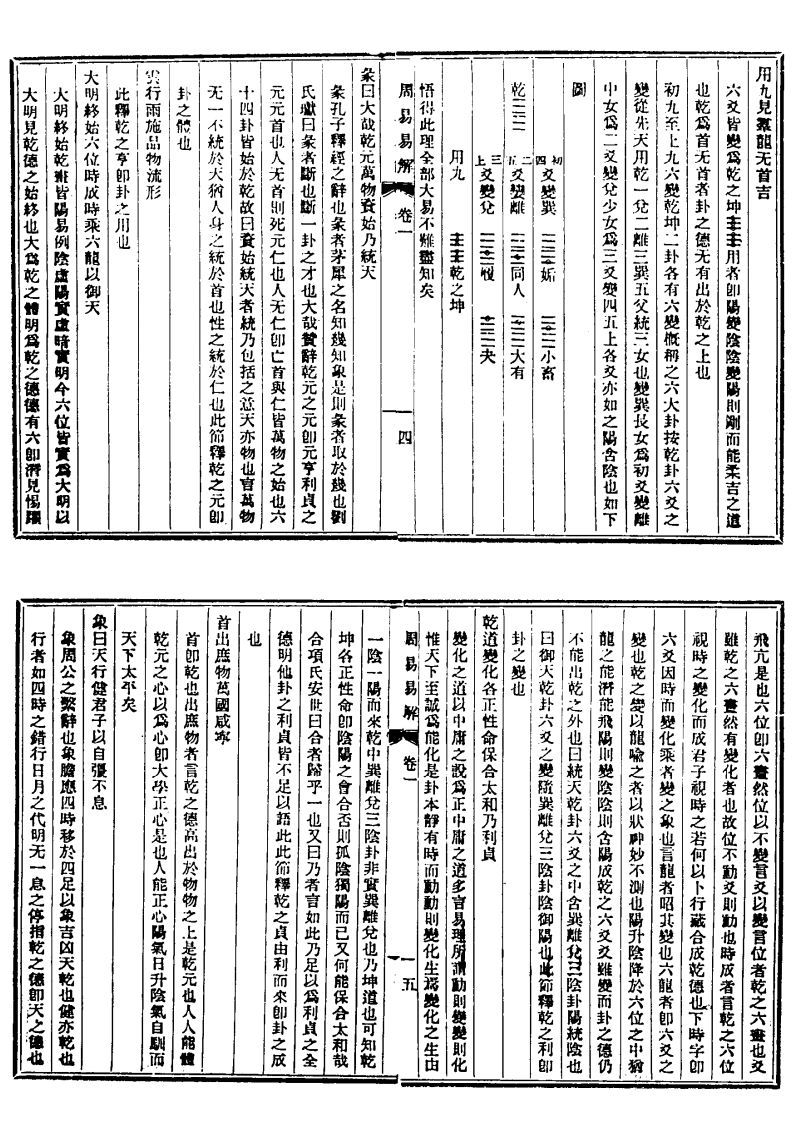 用九見羣龍无首吉
六爻皆變爲乾之坤䷁䷁用者卽陽變陰陰變陽則剛而能柔吉之道
也乾爲首无首者卦之德无有出於乾之上也
初九至上九六變乾坤二卦各有六變概稱之六大卦按乾卦六爻之
變從先天用乾一兌二離三巽五父統三女也變巽長女爲初爻變離
中女爲二爻變兌少女爲三爻變四五上各爻亦如之陽含陰也如下
圖
初四爻變巽 ䷫姤 ䷈小畜
乾䷀ 二五爻變離 ䷌同人 ䷍大有
三上爻變兌 ䷉履 ䷪夬
用九 乾之坤
悟得此理全部大易不難盡知矣
周易易解 卷一 四
彖曰大哉乾元萬物資始乃統天
彖孔子釋經之辭也彖者茅犀之名知幾知象是則彖者取於幾也劉
氏瓛曰彖者斷也斷一卦之才也大哉贊辭乾元之元卽元亨利貞之
元元首也人无首則死元仁也人无仁卽亡首與仁皆萬物之始也六
十四卦皆始於乾故曰資始統天者統乃包括之意天亦物也言萬物
无一不統於天猶人身之統於首也性之統於仁也此節釋乾之元卽
卦之體也
雲行雨施品物流形
此釋乾之亨卽卦之用也
大明終始六位時成時乘六龍以御天
大明終始乾畫皆陽易例陰虛陽實虛暗實明今六位皆實爲大明以
大明見乾德之始終也大爲乾之體明爲乾之德德有六卽潛見惕躍
飛亢是也六位卽六畫然位以不變言爻以變言位者乾之六畫也爻
雖乾之六畫然有變化者也故位不動爻則動也時成者言乾之六位
視時之變化而成君子視時之若何以卜行藏合成乾德也下時字卽
六爻因時而變化乘者變之象也言龍者昭其變也六龍者卽六爻之
變也乾之變以龍喻之者以狀神妙不測也陽升陰降於六位之中猶
龍之能潛能飛陽則變陰陰則含陽成乾之六爻爻雖變而卦之德仍
不能出乾之外也曰統天乾卦六爻之中含巽離兌三陰卦陽統陰也
曰御天乾卦六爻之變隨巽離兌三陰卦陰御陽也此節釋乾之利卽
卦之變也
乾道變化各正性命保合太和乃利貞
變化之道以中庸之說爲正中庸之道多言易理所謂動則變變則化
惟天下至誠爲能化是卦本靜有時而動動則變化生焉變化之生由
周易易解 卷一 五
一陰一陽而來乾中巽離兌三陰卦非實巽離兌也乃坤道也可知乾
坤各正性命卽陰陽之會合否則孤陰獨陽而已又何能保合太和哉
合項氏安世曰合者歸乎一也又曰乃者言如此乃足以爲利貞之全
德明他卦之利貞皆不足以語此此節釋乾之貞由利而來卽卦之成
也
首出庶物萬國咸寧
首卽乾也出庶物者言乾之德高出於物物之上是乾元也人人能體
乾元之心以爲心卽大學正心是也人能正心陽氣日升陰氣自馴而
天下太平矣
象曰天行健君子以自強不息
象周公之繫辭也象膽應四時移於四足以象吉凶天乾也健亦乾也
行者如四時之錯行日月之代明无一息之停指乾之德卽天之德也